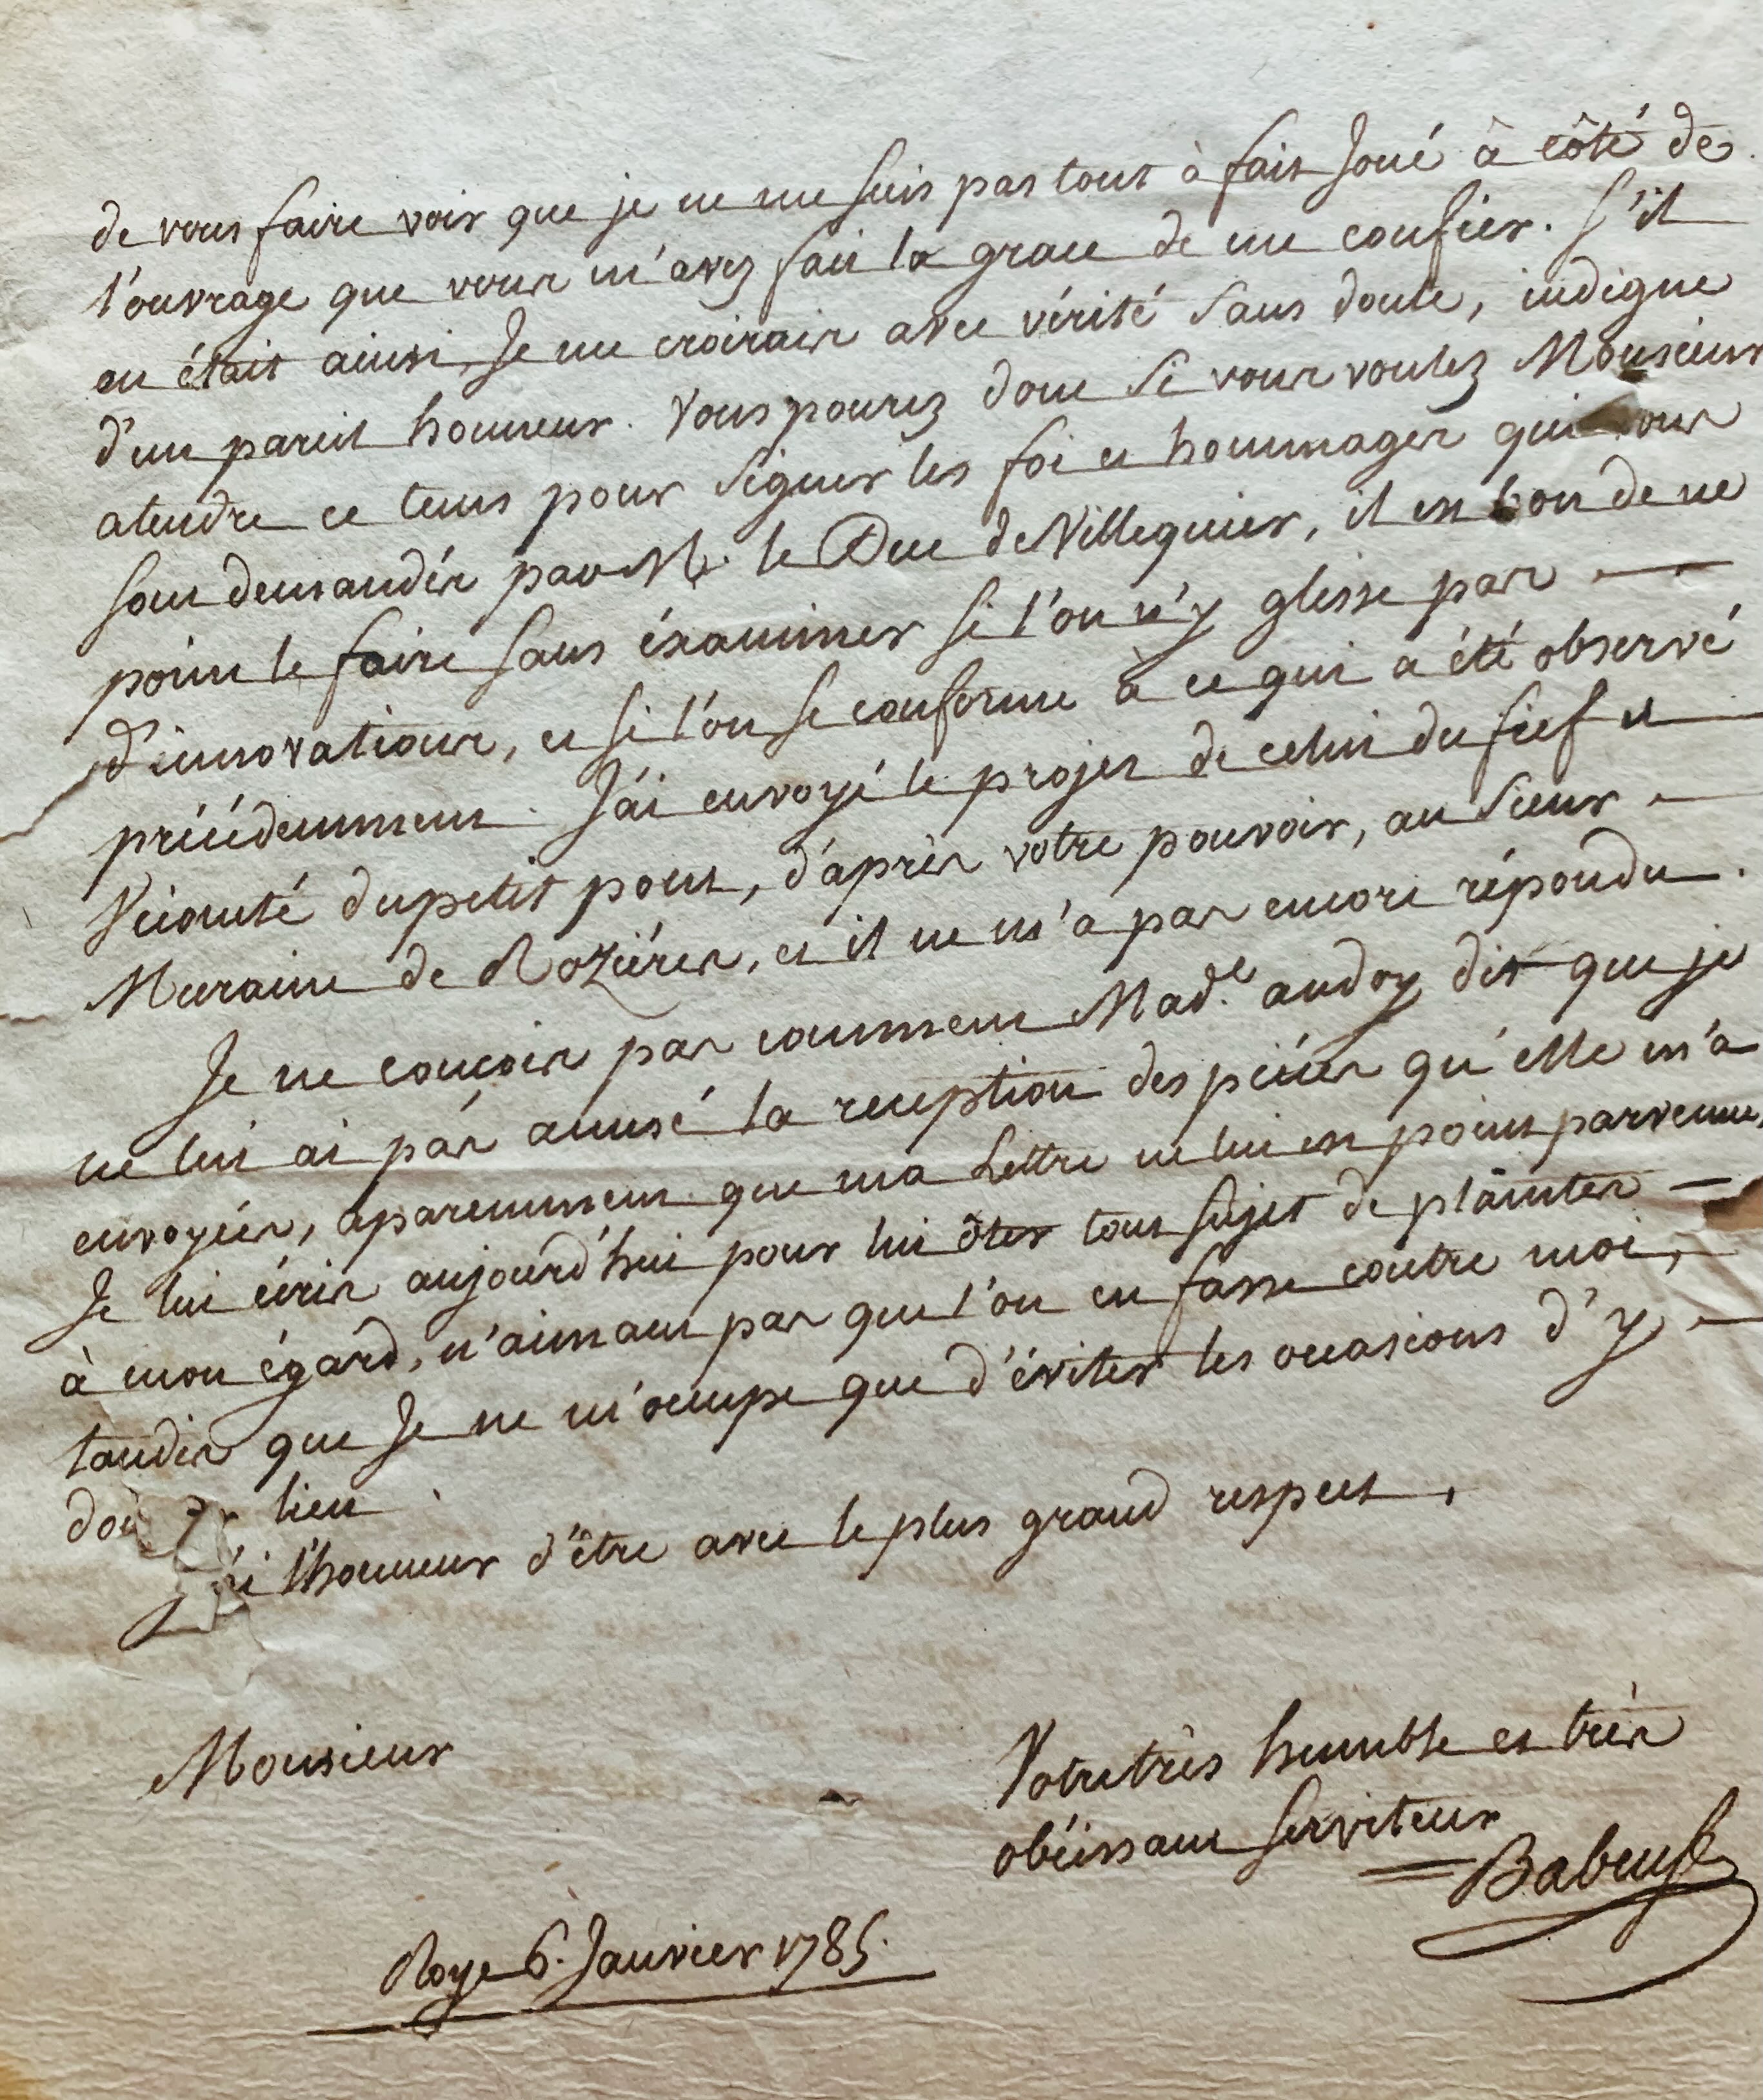 de vous faire voir que je ne me suis pas tout à fait joué à côté de
l'ouvrage que vous m'avez fait la grace de me confier. S'il
en était ainsi, Je me croirais avec vérité sans doute, indigne
d'un pareil honneur. Vous pourez donc si vous voulez Monsieur
atendre ce tems pour signer les foi et hommages qui vous
sont demandés par M. le Duc de Villequier, il est bon de ne
point le faire sans éxaminer si l'on n'y glisse pas
d'innovations, et si l'on se conforme à ce qui a été observé
précédemment. J'ai envoyé le projet de celui du fief et
Vicomté du petit pont, d'après votre pouvoir, au Sieur
Muraine de Rozières, et il ne m'a pas encore répondu.
Je ne concois pas comment Mad.e audoy dit que je
ne lui ai pas acusé la reception des pièces qu'elle m'a
envoyées, aparemment que ma Lettre ne lui est point parvenue,
Je lui écris aujourd'hui pour lui ôter tout sujet de plaintes
à mon égard, n'aimant pas que l'on en fasse contre moi,
tandis que Je ne m'ocupe que d'éviter les occasions d'y
lieu.
J'ai l'honneur d'être avec le plus grand respect,
Monsieur
Votre très humble et très
obéissant serviteur
Babeuf
Roye 6. Janvier 1785.